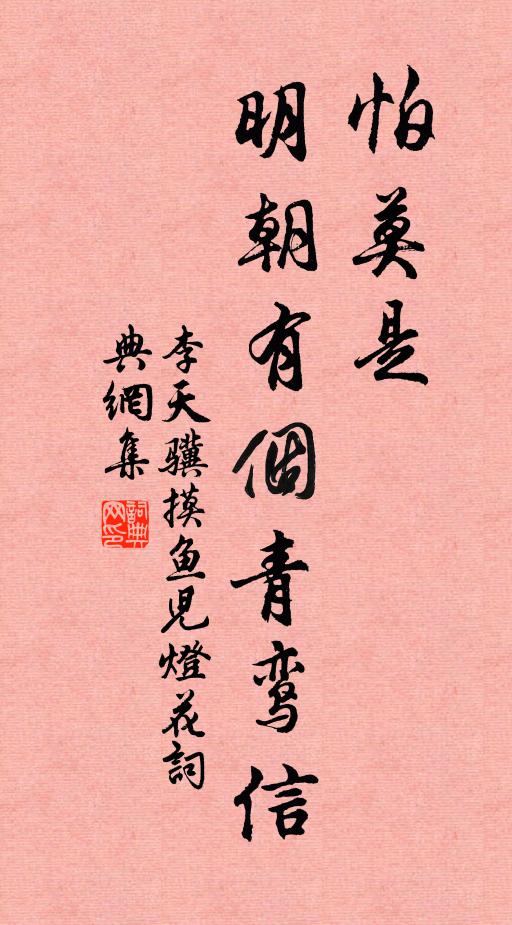 怕莫是
明朝有個青鸾信
李天骥摸鱼児燈花詞
典網集
詞典網印